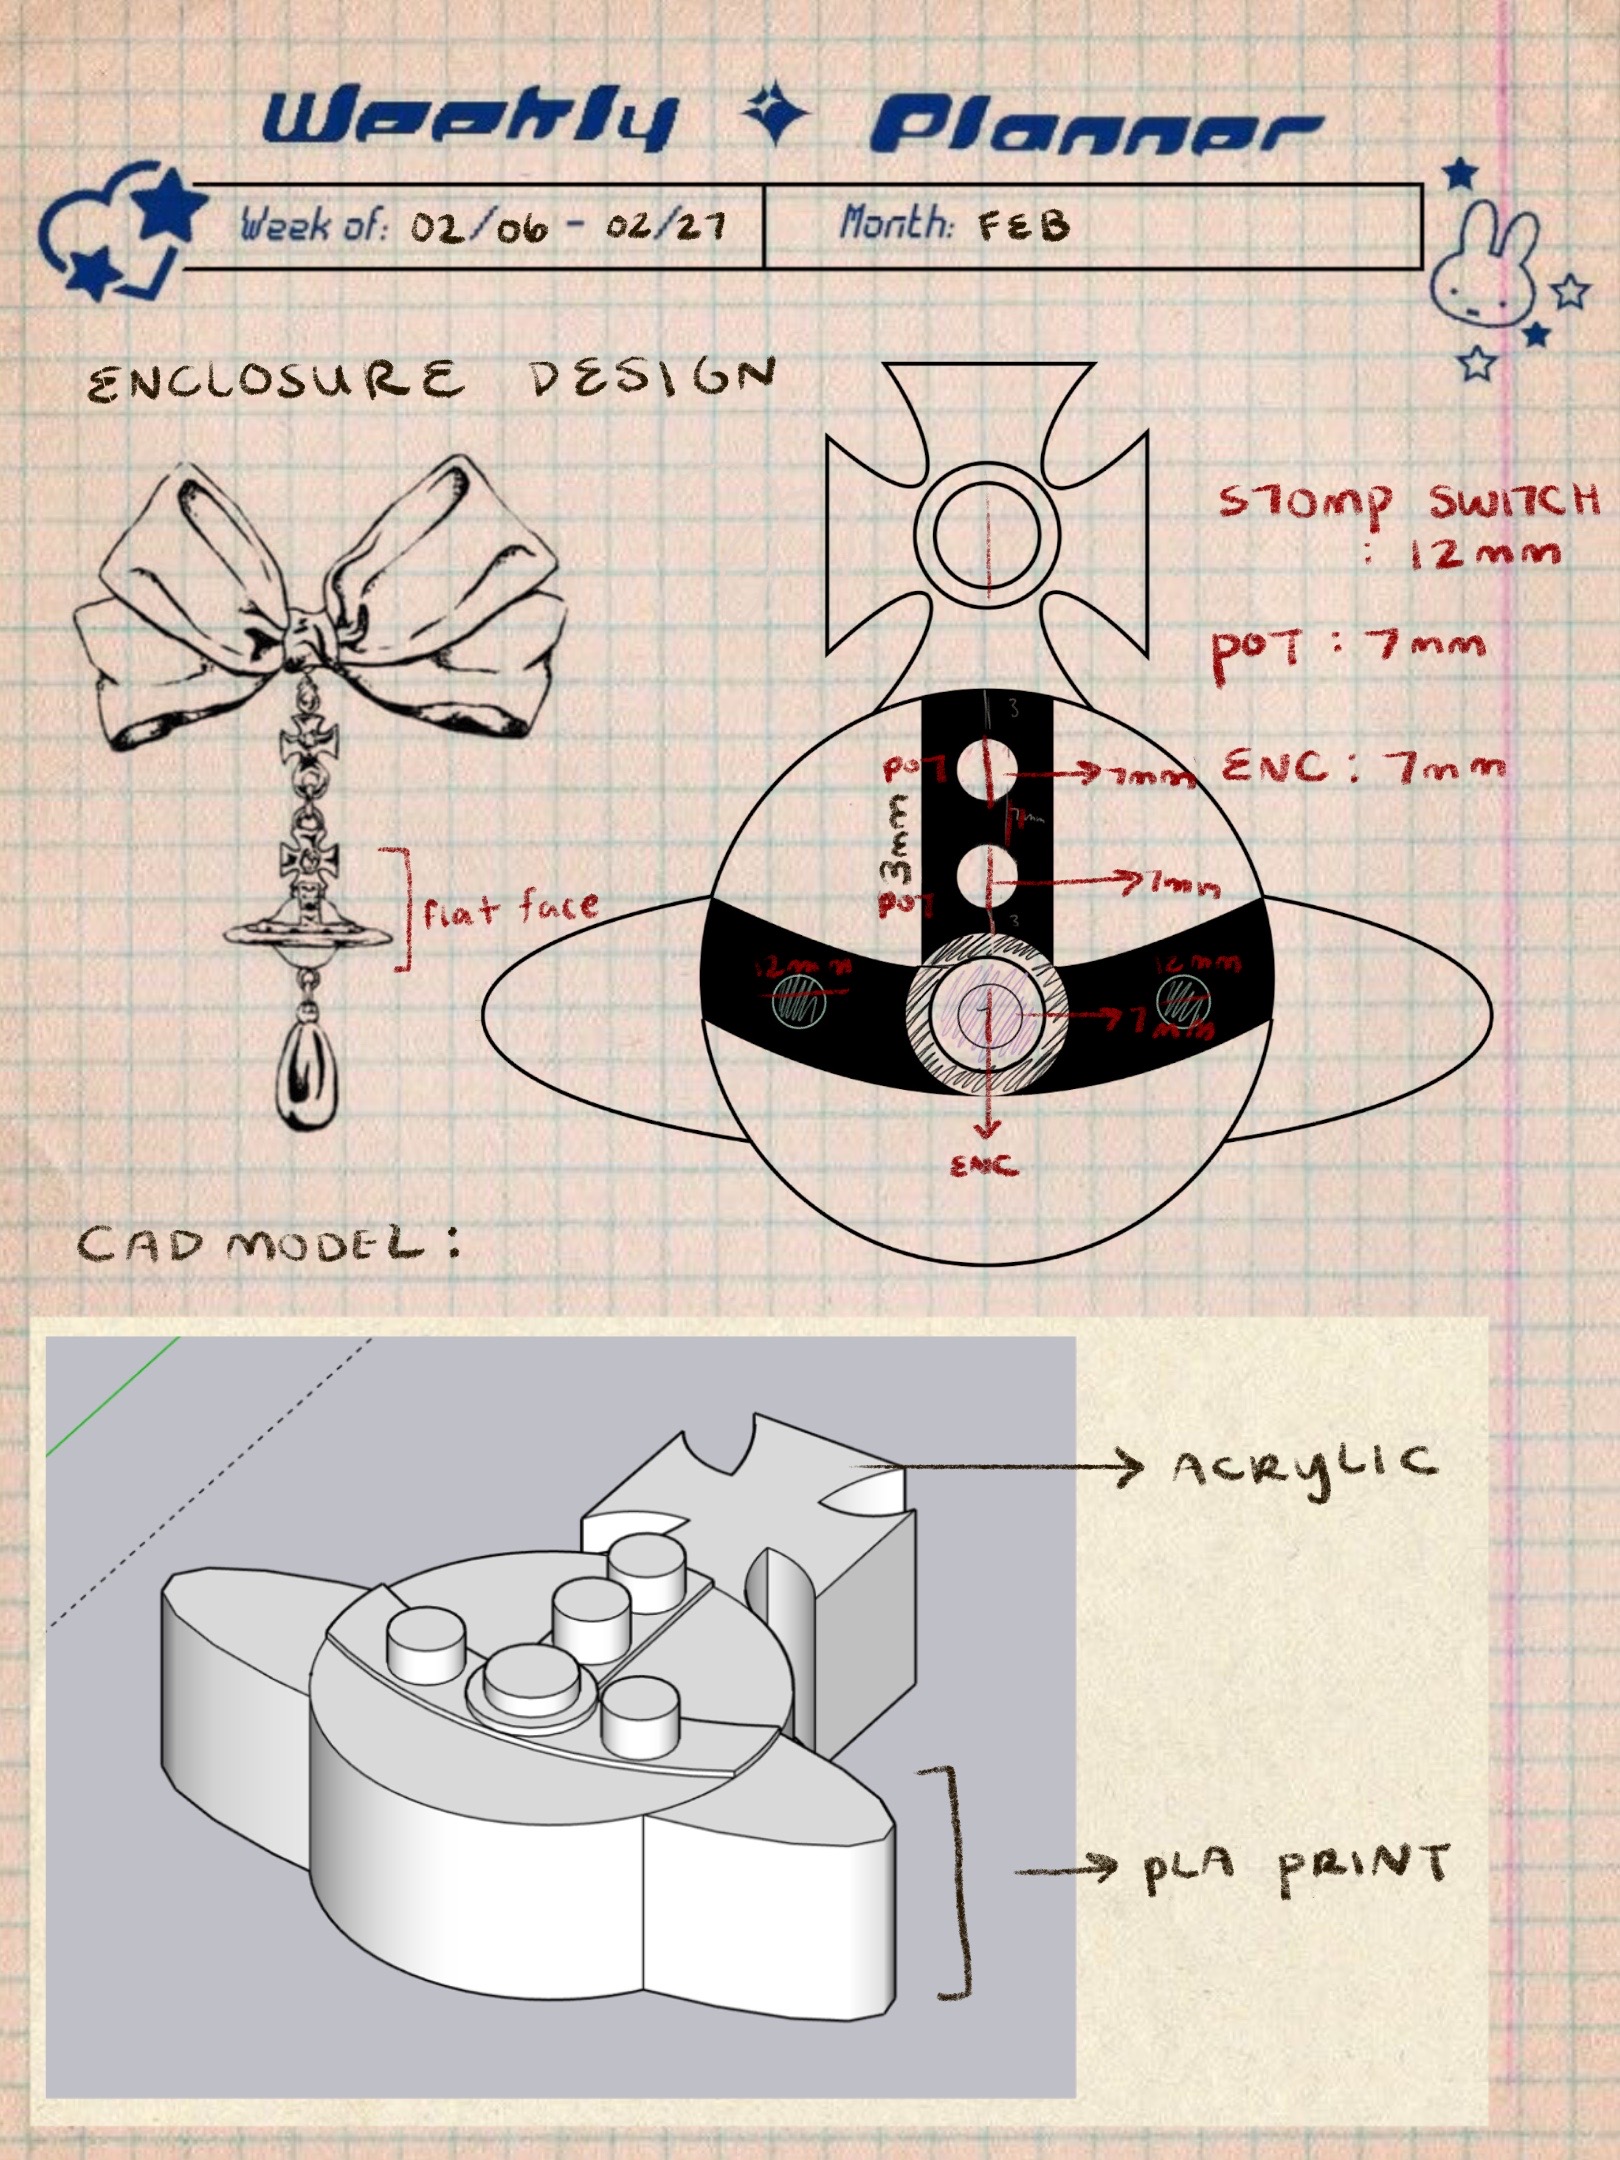 Weekly Planner
Week of: 02/06 - 02/27
Month: FEB
ENCLOSURE DESIGN
STOMP SWITCH
: 12mm
POT : 7mm
ENC : 7mm
3
POT
7mm
3mm
7mm
POT
7mm
3
flat face
12mm
12mm
7mm
ENC
CAD MODEL :
ACRYLIC
PLA PRINT